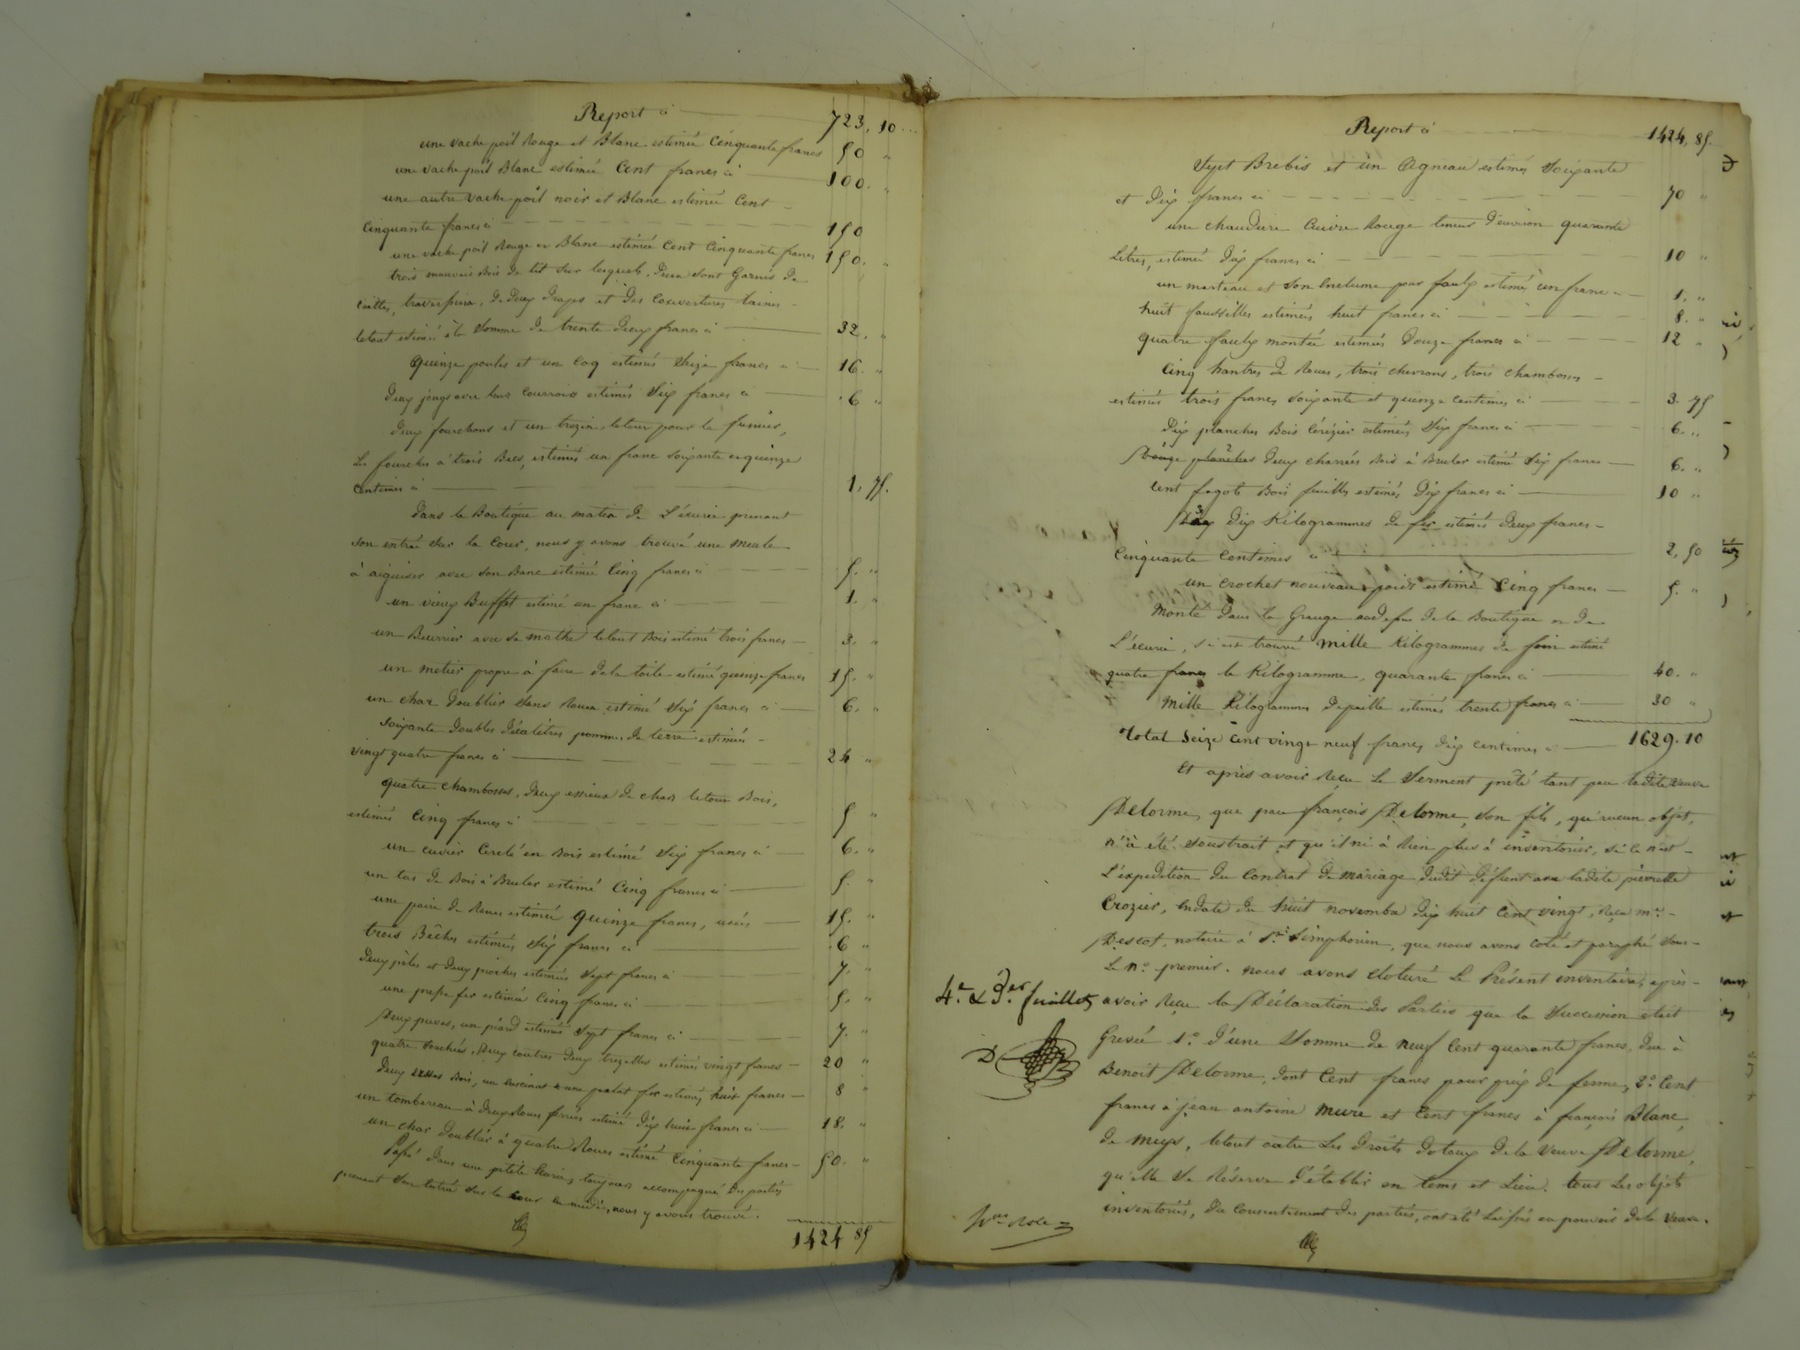 Report ci 723, 10
une vache poil Rouge et Blanc estimée Cinquante francs 50 "
une vache poil Blanc estimée Cent francs ci 100. "
une autre vache poil noir et Blanc estimée Cent
Cinquante francs ci 150
une vache poil Rouge et Blanc estimée Cent Cinquante francs 150. "
trois mauvais Bois de lit sur lesquels Deux sont Garnis de
traversins, de Deux Draps et des Couvertures laines
letout estimé à la Somme de trente Deux francs ci 32. "
quinze poules et un Coq estimés Seize francs ci 16. "
Deux jougs avec leurs courroies estimés Six francs ci 6 "
Deux fourchons et un letout pour le fumier,
La fourche à trois Becs, estimés un franc Soixante et quinze
Centimes ci 1, 75.
Dans la Boutique au matin de L'écurie prenant
son entrée sur la Cour, nous y avons trouvé une meule
à aiguiser avec son Banc estimée Cinq francs ci 5. "
un vieux Buffet estimé un franc ci 1. "
un Beurrier avec sa letout Bois estimé trois francs 3. "
un métier propre à faire de la toile estimé quinze francs 15. "
un char Doublier Sans Roues estimé Six francs ci 6. "
Soixante Doubles Décalitres pommes de terre estimées
vingt quatre francs ci 24 "
quatre Chambosses, Deux essieux de char letout Bois,
estimés Cinq francs ci 5 "
un cuvier Cerclé en Bois estimé Six francs ci 6. "
un tas de Bois à Bruler estimé Cinq francs ci 5. "
une paire de Roues estimée quinze francs, usées 15. "
trois Bêches estimées Six francs ci 6 "
Deux pelles et Deux pioches estimées Sept francs ci 7. "
une fer estimée Cinq francs ci 5. "
Deux un estimés Sept francs ci 7. "
quatre Deux coutres Deux estimés vingt francs 20 "
Deux Bois, un et une fer estimés huit francs 8 "
un tombereau à Deux Roues ferrées estimé Dix huit francs ci 18. "
un char Doublier à quatre Roues estimé Cinquante francs 50. "
Passé Dans une petite toujours accompagné Des parties
prenant Son entrée sur la Cour au midi, nous y avons trouvé.
1424 85
Report ci 1424, 85.
Sept Brebis et un Agneau estimés Soixante
et Dix francs ci 70 "
une chaudière Cuivre Rouge tenant D'environ quarante
Litres, estimée Dix francs ci 10 "
un marteau et son Enclume pour faulx estimés un franc 1, "
huit faussilles estimées huit francs ci 8. "
quatre faulx montées estimées Douze francs ci 12 "
Cinq hantres de Roues, trois chevrons, trois chambosses
estimés trois francs Soixante et quinze centimes ci 3. 75
Dix planches Bois Cerizier estimées Six francs ci 6. "
Deux charrées Bois à Bruler estimé Six francs 6. "
Cent fagots Bois feuilles estimés Dix francs ci 10 "
Dix Kilogrammes de fer estimés Deux francs
Cinquante Centimes ci 2, 50
un crochet nouveau poids estimé Cinq francs 5. "
Monté Dans la Grange audessus de la Boutique et de
L'écurie, s'i est trouvé Mille Kilogrammes de foin estimé
quatre francs le Kilogramme, quarante francs ci 40. "
Mille Kilogrammes de paille estimés trente francs ci 30 "
Total Seize cent vingt neuf francs Dix centimes ci 1629. 10
Et après avoir Reçu Le Serment prêté tant par ladite veuve
Delorme, que par françois Delorme, son fils, qu'aucun objet,
n'a été soustrait et qu'il ni à Rien plus à inventorier, Si ce n'est
L'expedition du Contrat de mariage dudit défunt avec ladite pierrette
Crozier, endate du huit novembre Dix huit cent vingt, Reçu me.
Descot, notaire à St. Simphorien, que nous avons coté et paraphé Sous
Le no. premier. nous avons cloturé Le Présent inventaire, après
4.e & D.er feuillets avoir Reçu la Déclaration des Parties que la Succession était
D Grevée 1.o D'une Somme de neuf Cent quarante francs, due à
Benoit Delorme, dont Cent francs pour prix de ferme, 2.o Cent
francs à jean antoine Mure et Cent francs à françois Blanc,
de Meys, letout outre Les Droits Dotaux de la Veuve Delorme,
qu'elle Se Réserve D'établir en tems et Lieu. tous Les objets
inventoriés, Du Consentement des parties, ont été Laissés au pouvoir de la Veuve.